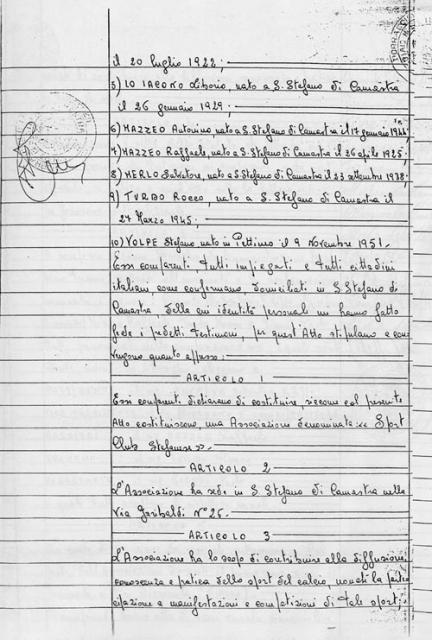 il 20 luglio 1922;
5) LO IACONO Liborio, nato a S. Stefano di Camastra
il 26 gennaio 1929;
6) MAZZEO Antonino, nato a S. Stefano di Camastra il 17 gennaio 1944;
7) MAZZEO Raffaele, nato a S. Stefano di Camastra il 26 aprile 1925;
8) MERLO Salvatore, nato a S. Stefano di Camastra il 23 settembre 1938;
9) TURBO Rocco, nato a S. Stefano di Camastra il
27 Marzo 1945;
10) VOLPE Stefano nato in Pettineo il 9 Novembre 1951.
Essi comparenti, tutti impiegati e tutti cittadini
italiani, come confermano, domiciliati in S. Stefano di
Camastra, della cui identità personale mi hanno fatto
fede i predetti testimoni, per quest'Atto stipulano e con=
vengono quanto appresso:
ARTICOLO 1
Essi comparenti dichiarano di costituire, siccome col presente
Atto costituiscono, una Associazione denominata << Sport
Club Stefanese >>.
ARTICOLO 2
L'Associazione ha sede in S. Stefano di Camastra nella
Via Garibaldi N° 25.
ARTICOLO 3
L'Associazione ha lo scopo di contribuire alla diffusione,
conoscenza e pratica dello sport del calcio, nonché la parte=
cipazione a manifestazioni e competizioni di tale sport;